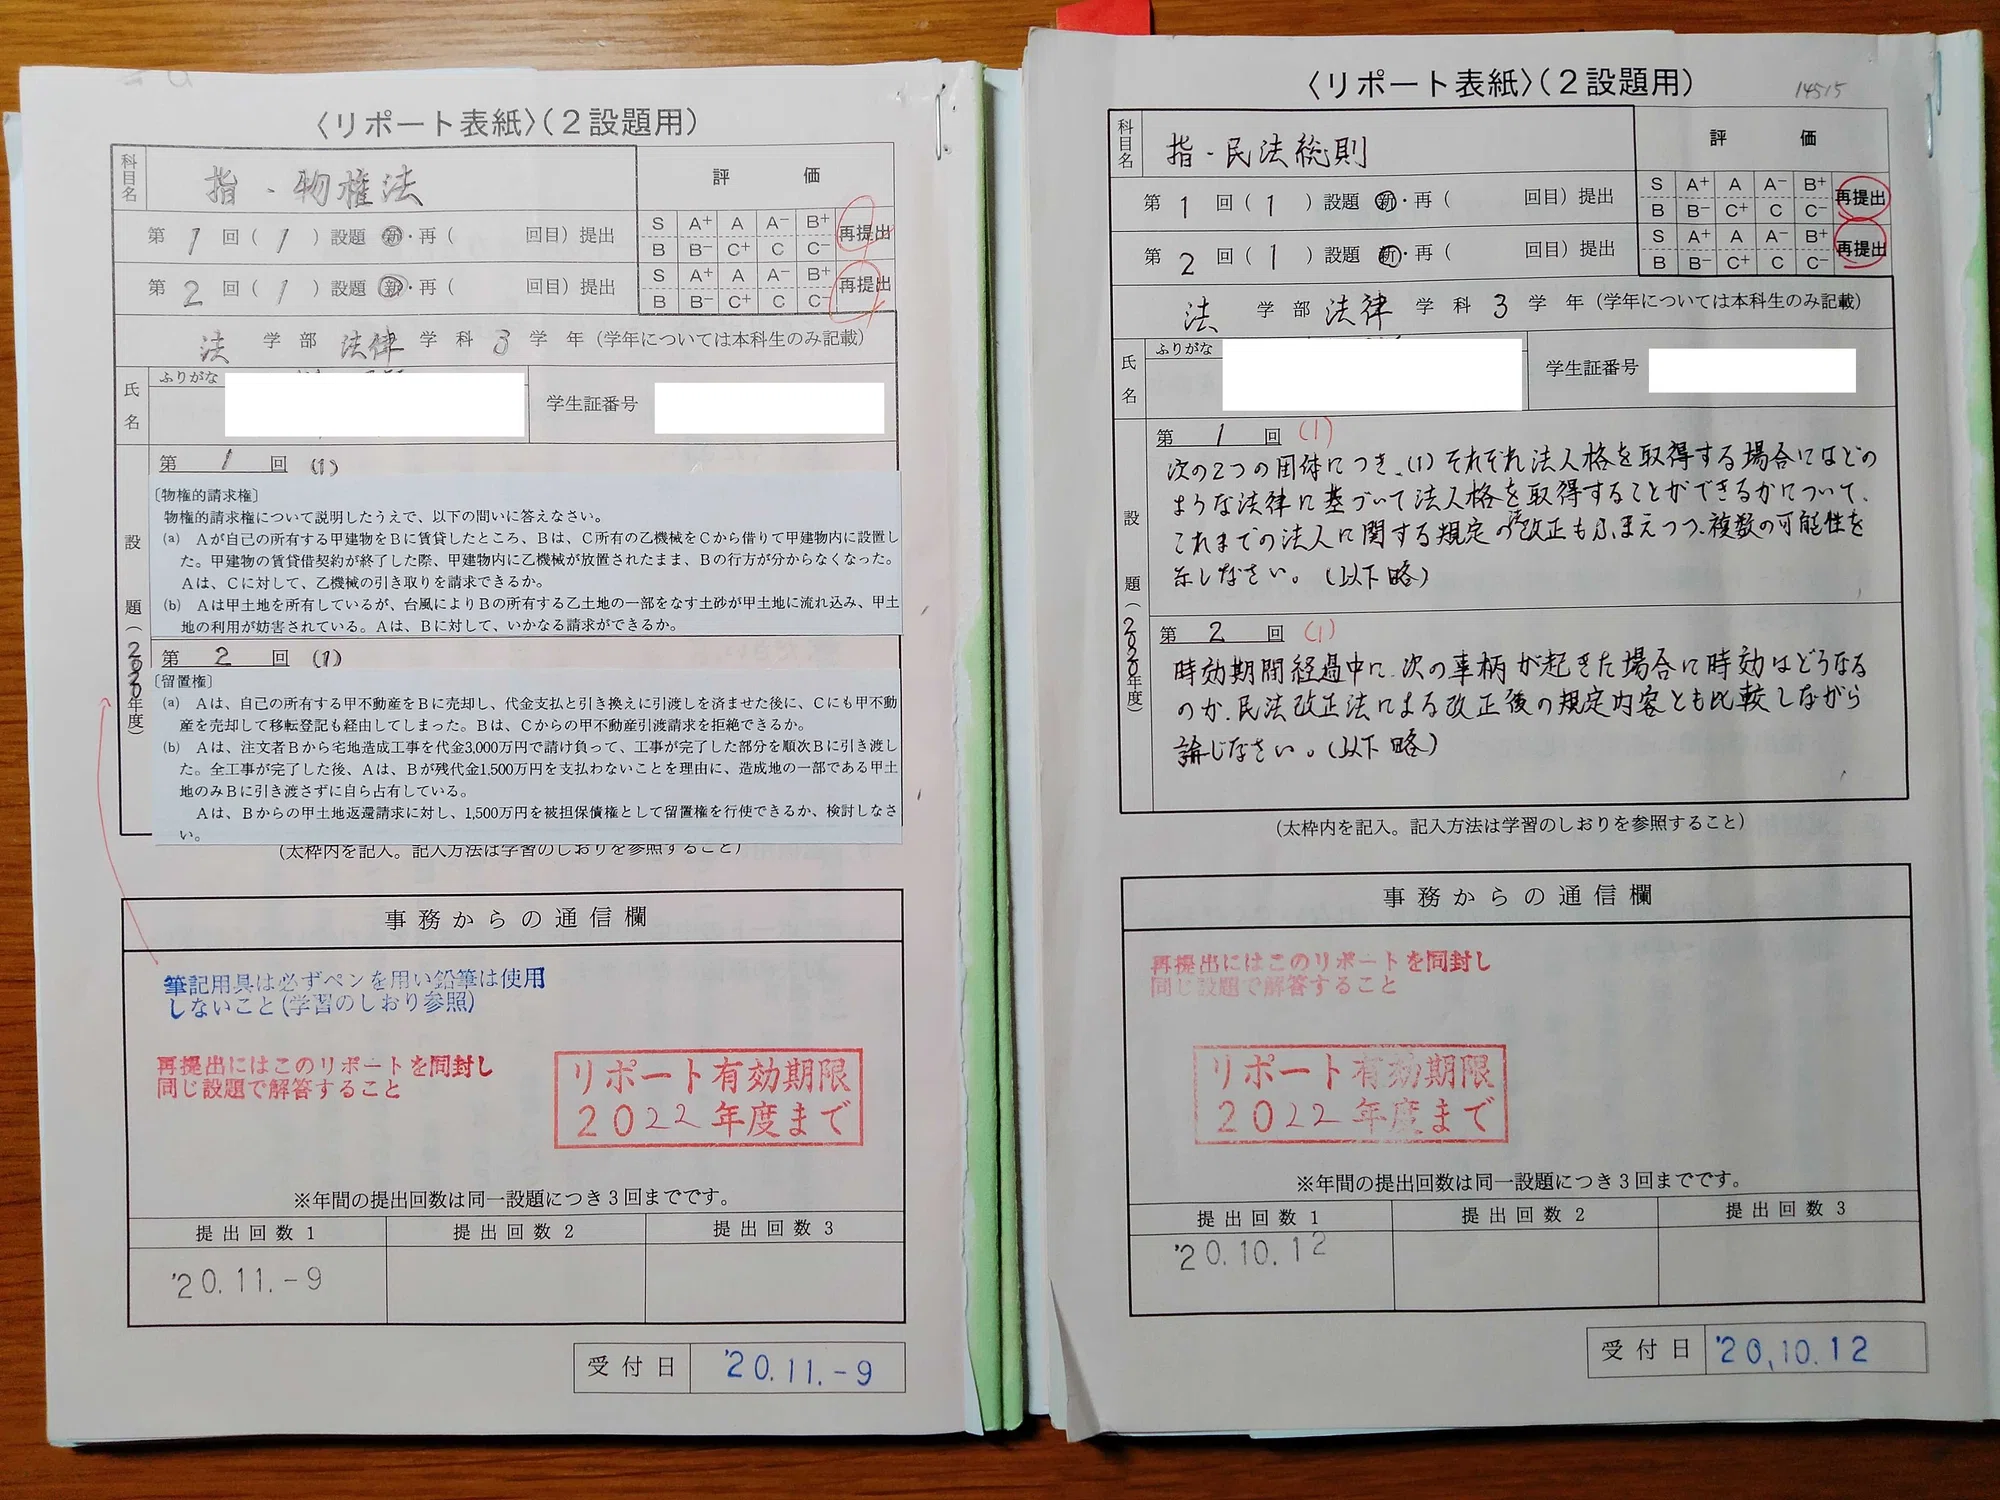 〈リポート表紙〉(2設題用)
科目名 指・物権法
評価
第 1 回( 1 )設題 新・再( 回目)提出
S A+ A A− B+ 再提出
B B− C+ C C−
第 2 回( 1 )設題 新・再( 回目)提出
S A+ A A− B+ 再提出
B B− C+ C C−
法 学部 法律 学科 3 学年(学年については本科生のみ記載)
ふりがな
氏名
学生証番号
設題(2020年度)
第 1 回 (1)
〔物権的請求権〕
物権的請求権について説明したうえで、以下の問いに答えなさい。
(a) Aが自己の所有する甲建物をBに賃貸したところ、Bは、C所有の乙機械をCから借りて甲建物内に設置し
た。甲建物の賃貸借契約が終了した際、甲建物内に乙機械が放置されたまま、Bの行方が分からなくなった。
Aは、Cに対して、乙機械の引き取りを請求できるか。
(b) Aは甲土地を所有しているが、台風によりBの所有する乙土地の一部をなす土砂が甲土地に流れ込み、甲土
地の利用が妨害されている。Aは、Bに対して、いかなる請求ができるか。
第 2 回 (1)
〔留置権〕
(a) Aは、自己の所有する甲不動産をBに売却し、代金支払と引き換えに引渡しを済ませた後に、Cにも甲不動
産を売却して移転登記も経由してしまった。Bは、Cからの甲不動産引渡請求を拒絶できるか。
(b) Aは、注文者Bから宅地造成工事を代金3,000万円で請け負って、工事が完了した部分を順次Bに引き渡し
た。全工事が完了した後、Aは、Bが残代金1,500万円を支払わないことを理由に、造成地の一部である甲土
地のみBに引き渡さずに自ら占有している。
Aは、Bからの甲土地返還請求に対し、1,500万円を被担保債権として留置権を行使できるか、検討しなさ
い。
(太枠内を記入。記入方法は学習のしおりを参照すること)
事務からの通信欄
筆記用具は必ずペンを用い鉛筆は使用
しないこと(学習のしおり参照)
再提出にはこのリポートを同封し
同じ設題で解答すること
リポート有効期限
2022年度まで
※年間の提出回数は同一設題につき3回までです。
提出回数1 提出回数2 提出回数3
'20.11.-9
受付日 '20.11.-9
〈リポート表紙〉(2設題用)
14515
科目名 指・民法総則
評価
第 1 回( 1 )設題 新・再( 回目)提出
S A+ A A− B+ 再提出
B B− C+ C C−
第 2 回( 1 )設題 新・再( 回目)提出
S A+ A A− B+ 再提出
B B− C+ C C−
法 学部 法律 学科 3 学年(学年については本科生のみ記載)
ふりがな
氏名
学生証番号
設題(2020年度)
第 1 回 (1)
次の2つの団体につき、(1)それぞれ法人格を取得する場合にはどの
ような法律に基づいて法人格を取得することができるかについて、
これまでの法人に関する規定の法改正もふまえつつ、複数の可能性を
示しなさい。(以下略)
第 2 回 (1)
時効期間経過中に、次の事柄が起きた場合に時効はどうなる
のか、民法改正法による改正後の規定内容とも比較しながら
論じなさい。(以下略)
(太枠内を記入。記入方法は学習のしおりを参照すること)
事務からの通信欄
再提出にはこのリポートを同封し
同じ設題で解答すること
リポート有効期限
2022年度まで
※年間の提出回数は同一設題につき3回までです。
提出回数1 提出回数2 提出回数3
'20.10.12
受付日 '20.10.12